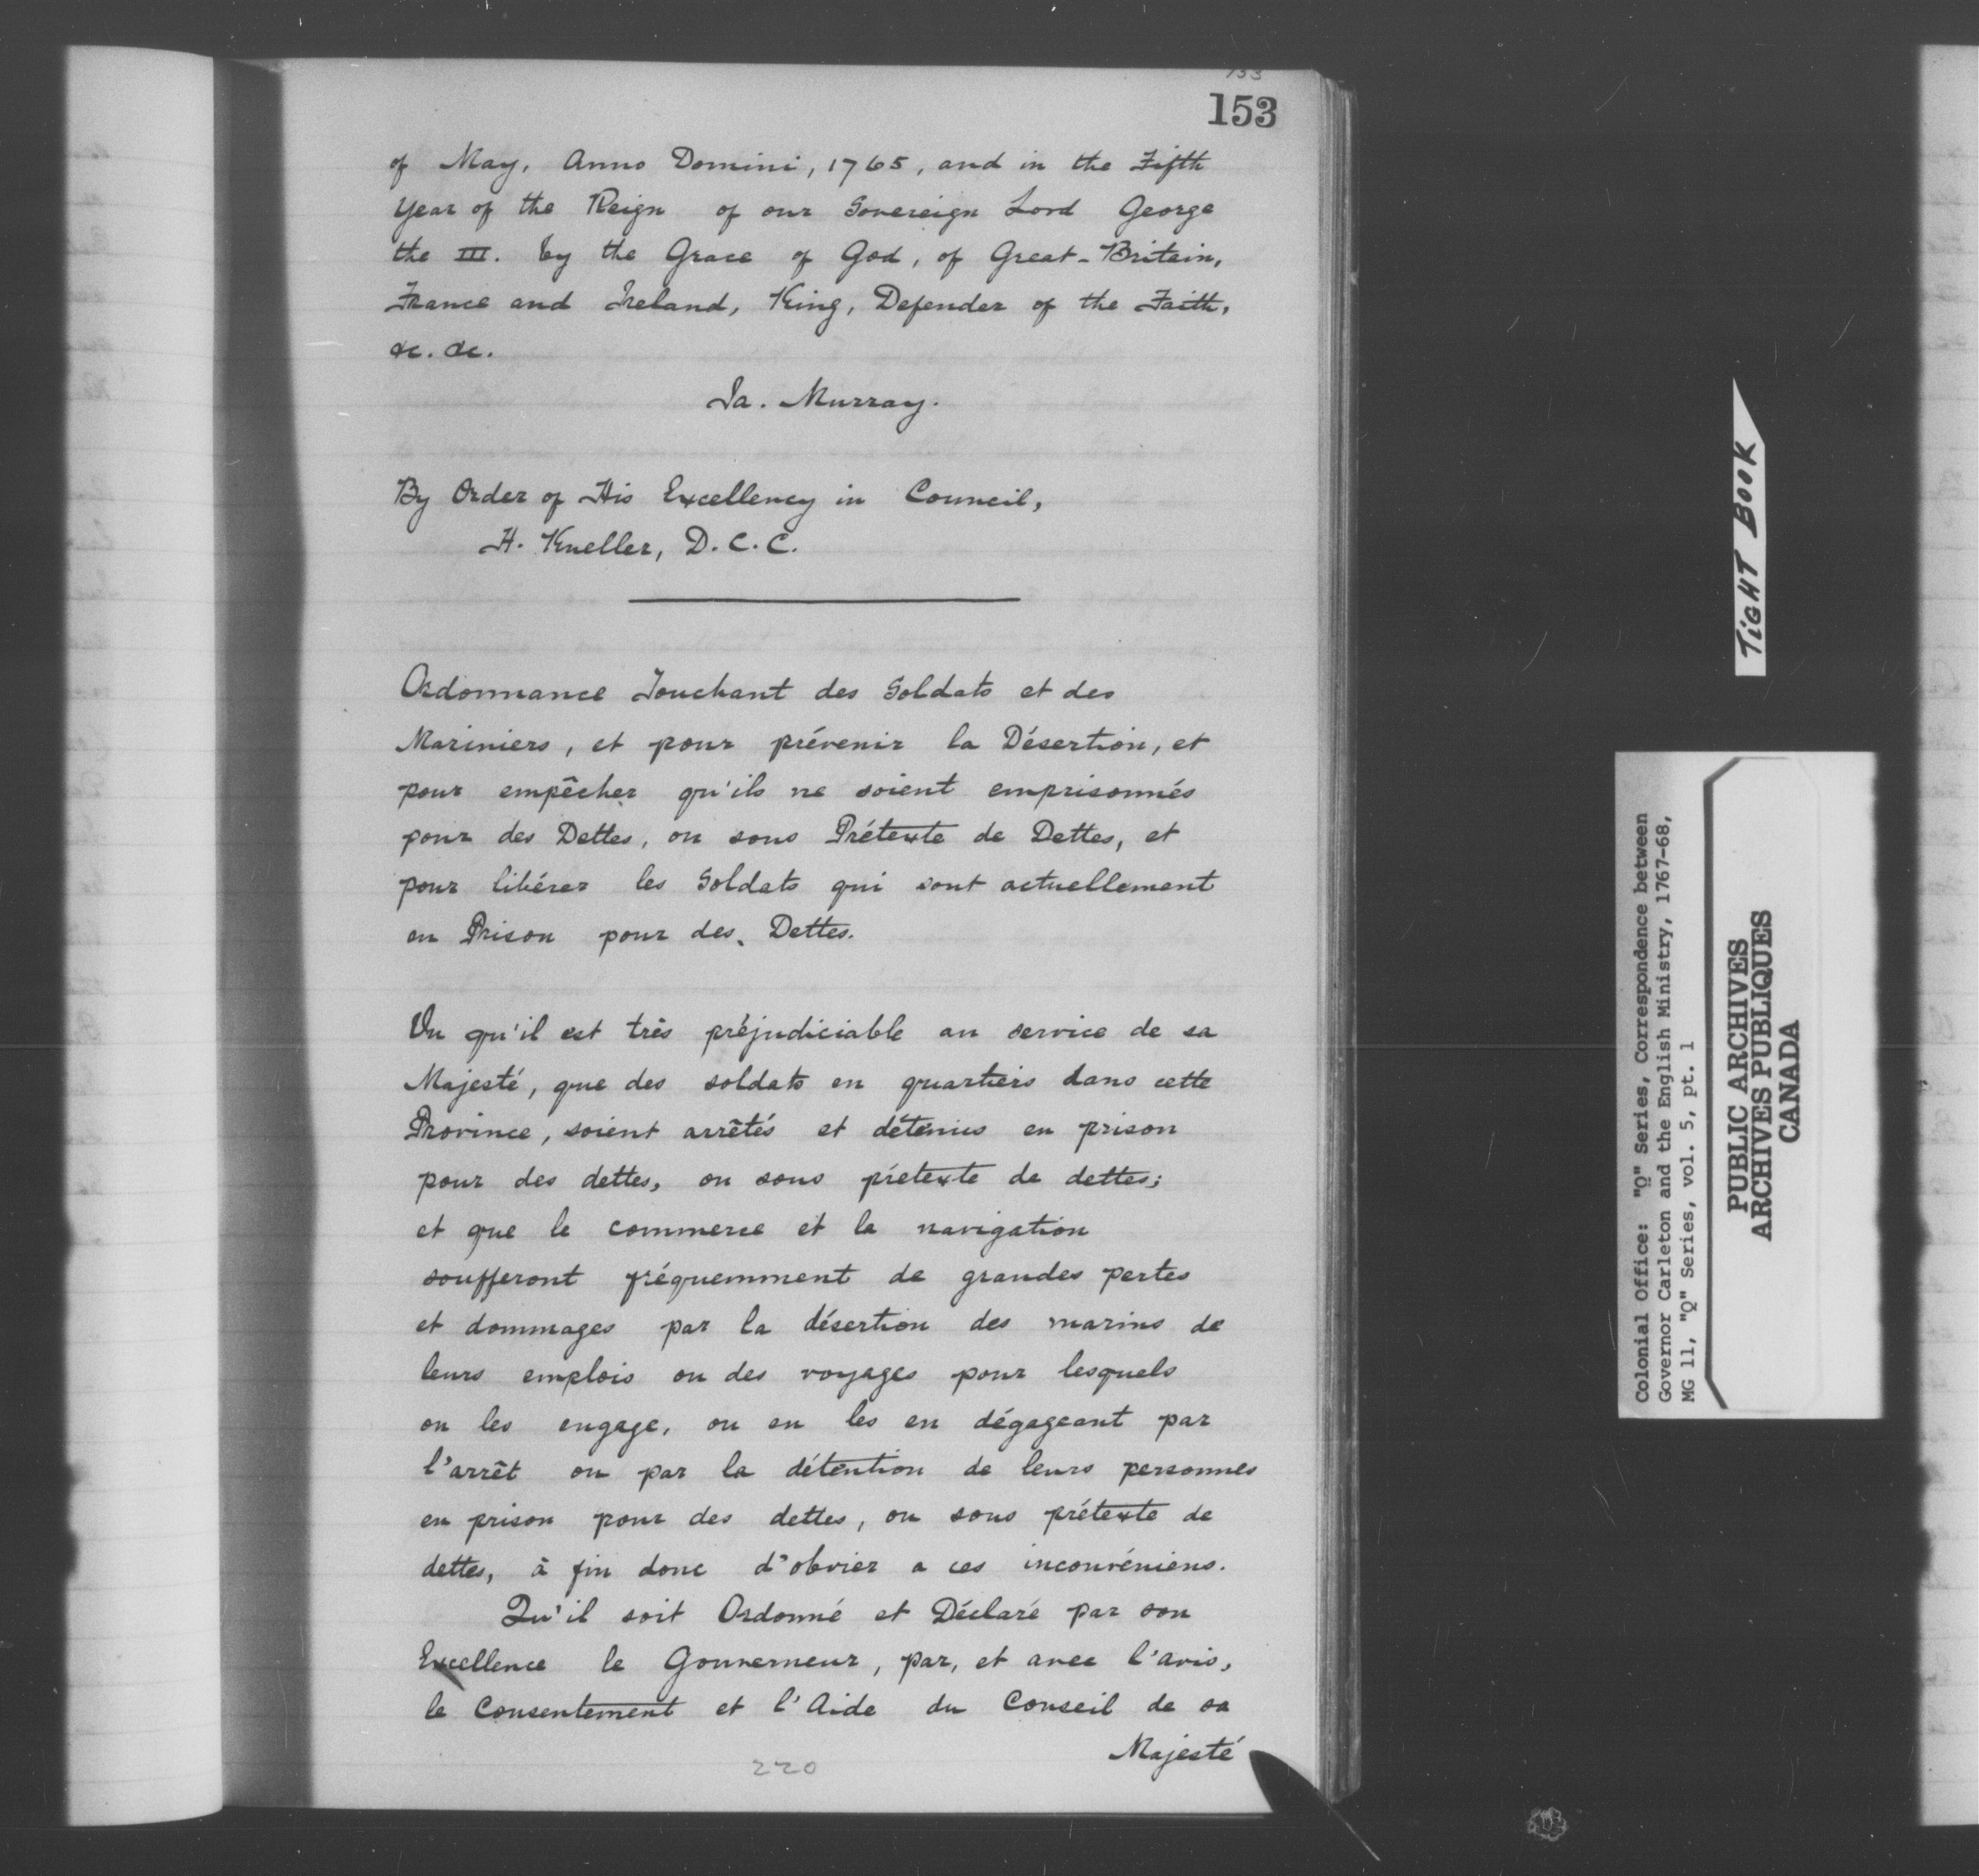 153
153
of May, Anno Domini, 1765, and in the Fifth
Year of the Reign of our Sovereign Lord George
the III. by the Grace of God, of Great-Britain,
France and Ireland, King, Defender of the Faith,
&c. &c.
Ja. Murray.
By Order of His Excellency in Council,
H. Kneller, D.C.C.
Ordonnance Touchant des Soldats et des
Mariniers, et pour prévenir la Désertion, et
pour empêcher qu'ils ne soient emprisonnés
pour des Dettes, ou sous Prétexte de Dettes, et
pour libérer les Soldats qui sont actuellement
en Prison pour des Dettes.
Vu qu'il est très préjudiciable au service de sa
Majesté, que des soldats en quartiers dans cette
Province, soient arrêtés et détenus en prison
pour des dettes, ou sous prétexte de dettes;
et que le commerce et la navigation
soufferont fréquemment de grandes pertes
et dommages par la désertion des marins de
leurs emplois ou des voyages pour lesquels
on les engage, ou en les en dégageant par
l'arrêt ou par la détention de leurs personnes
en prison pour des dettes, ou sous prétexte de
dettes, à fin donc d'obvier a ces inconvéniens.
Qu'il soit Ordonné et Déclaré par son
Excellence le Gouverneur, par, et avec l'avis,
le Consentement et l'Aide du Conseil de sa
Majesté
220
TIGHT BOOK
Colonial Office: "Q" Series, Correspondence between
Governor Carleton and the English Ministry, 1767-68,
MG 11, "Q" Series, vol. 5, pt. 1
PUBLIC ARCHIVES
ARCHIVES PUBLIQUES
CANADA